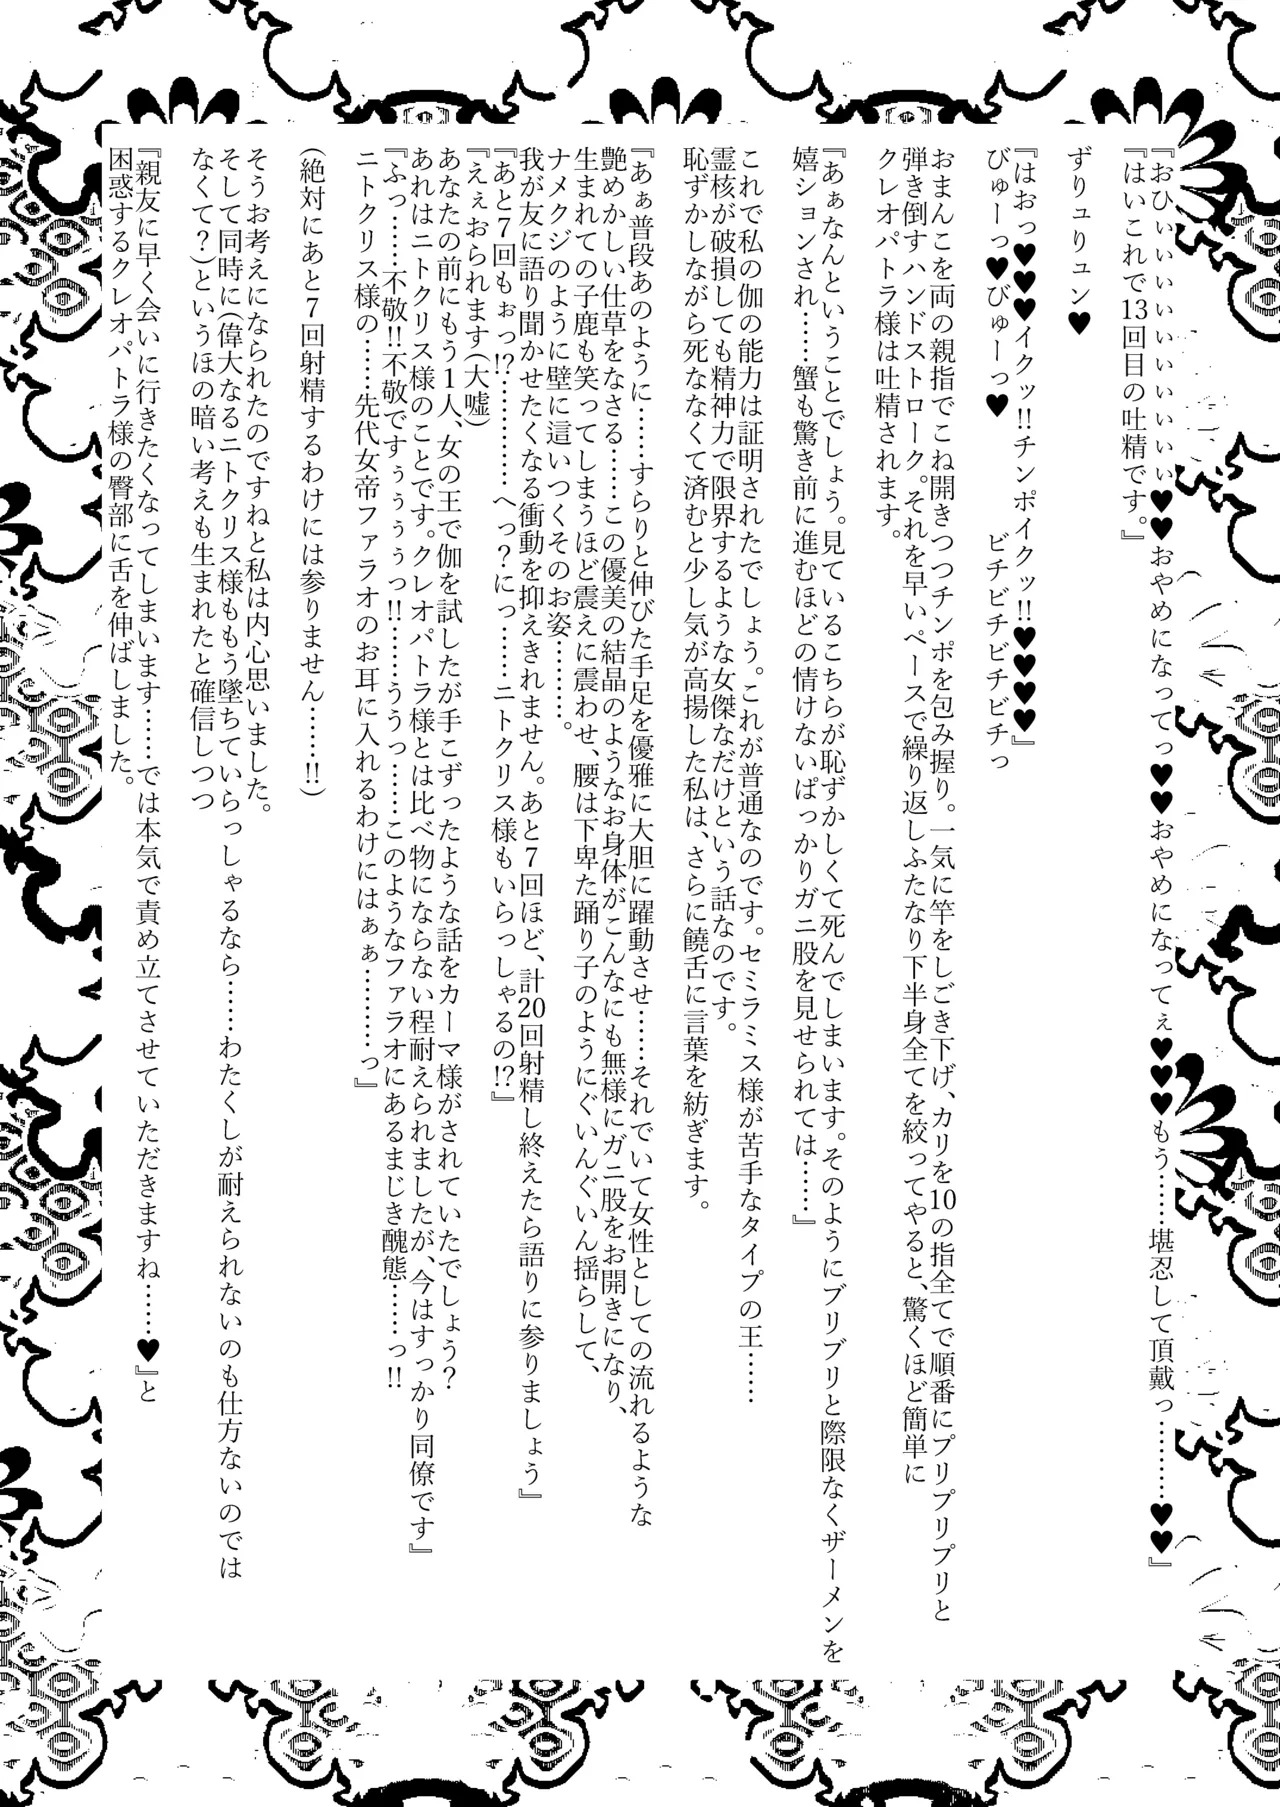 『おひぃぃぃぃぃぃぃぃぃ♥♥おやめになってっ♥♥おやめになってぇ♥♥♥もう……堪忍して頂戴っ………♥♥』
『はいこれで13回目の吐精です。』
ずりュりュン♥
『はおっ♥♥♥イクッ!!チンポイクッ!!♥♥♥♥』
びゅーっ♥びゅーっ♥　　　ビチビチビチビチっ
おまんこを両の親指でこね開きつつチンポを包み握り。一気に竿をしごき下げ、カリを10の指全てで順番にプリプリプリと
弾き倒すハンドストローク。それを早いペースで繰り返しふたなり下半身全てを絞ってやると、驚くほど簡単に
クレオパトラ様は吐精されます。
『あぁなんということでしょう。見ているこちらが恥ずかしくて死んでしまいます。そのようにブリブリと際限なくザーメンを
嬉ションされ……蟹も驚き前に進むほどの情けないぱっかりガニ股を見せられては……』
これで私の伽の能力は証明されたでしょう。これが普通なのです。セミラミス様が苦手なタイプの王……
霊核が破損しても精神力で限界するような女傑なだけという話なのです。
恥ずかしながら死ななくて済むと少し気が高揚した私は、さらに饒舌に言葉を紡ぎます。
『あぁ普段あのように……すらりと伸びた手足を優雅に大胆に躍動させ……それでいて女性としての流れるような
艶めかしい仕草をなさる……この優美の結晶のようなお身体がこんなにも無様にガニ股をお開きになり、
生まれての子鹿も笑ってしまうほど震えに震わせ、腰は下卑た踊り子のようにぐいんぐいん揺らして、
ナメクジのように壁に這いつくそのお姿………。
我が友に語り聞かせたくなる衝動を抑えきれません。あと7回ほど、計20回射精し終えたら語りに参りましょう』
『あと7回もぉっ!?…………へっ?にっ……ニトクリス様もいらっしゃるの!?』
『えぇおられます(大嘘)
あなたの前にもう1人、女の王で伽を試したが手こずったような話をカーマ様がされていたでしょう?
あれはニトクリス様のことです。クレオパトラ様とは比べ物にならない程耐えられましたが、今はすっかり同僚です』
『ふっ……不敬!!不敬ですぅぅぅぅっ!!……ううっ……このようなファラオにあるまじき醜態……っ!!
ニトクリス様の……先代女帝ファラオのお耳に入れるわけにはぁぁ………っ』
(絶対にあと7回射精するわけには参りません……!!)
そうお考えになられたのですねと私は内心思いました。
そして同時に(偉大なるニトクリス様ももう墜ちていらっしゃるなら……わたくしが耐えられないのも仕方ないのでは
なくて?)というほの暗い考えも生まれたと確信しつつ
『親友に早く会いに行きたくなってしまいます……では本気で責め立てさせていただきますね……♥』と
困惑するクレオパトラ様の臀部に舌を伸ばしました。